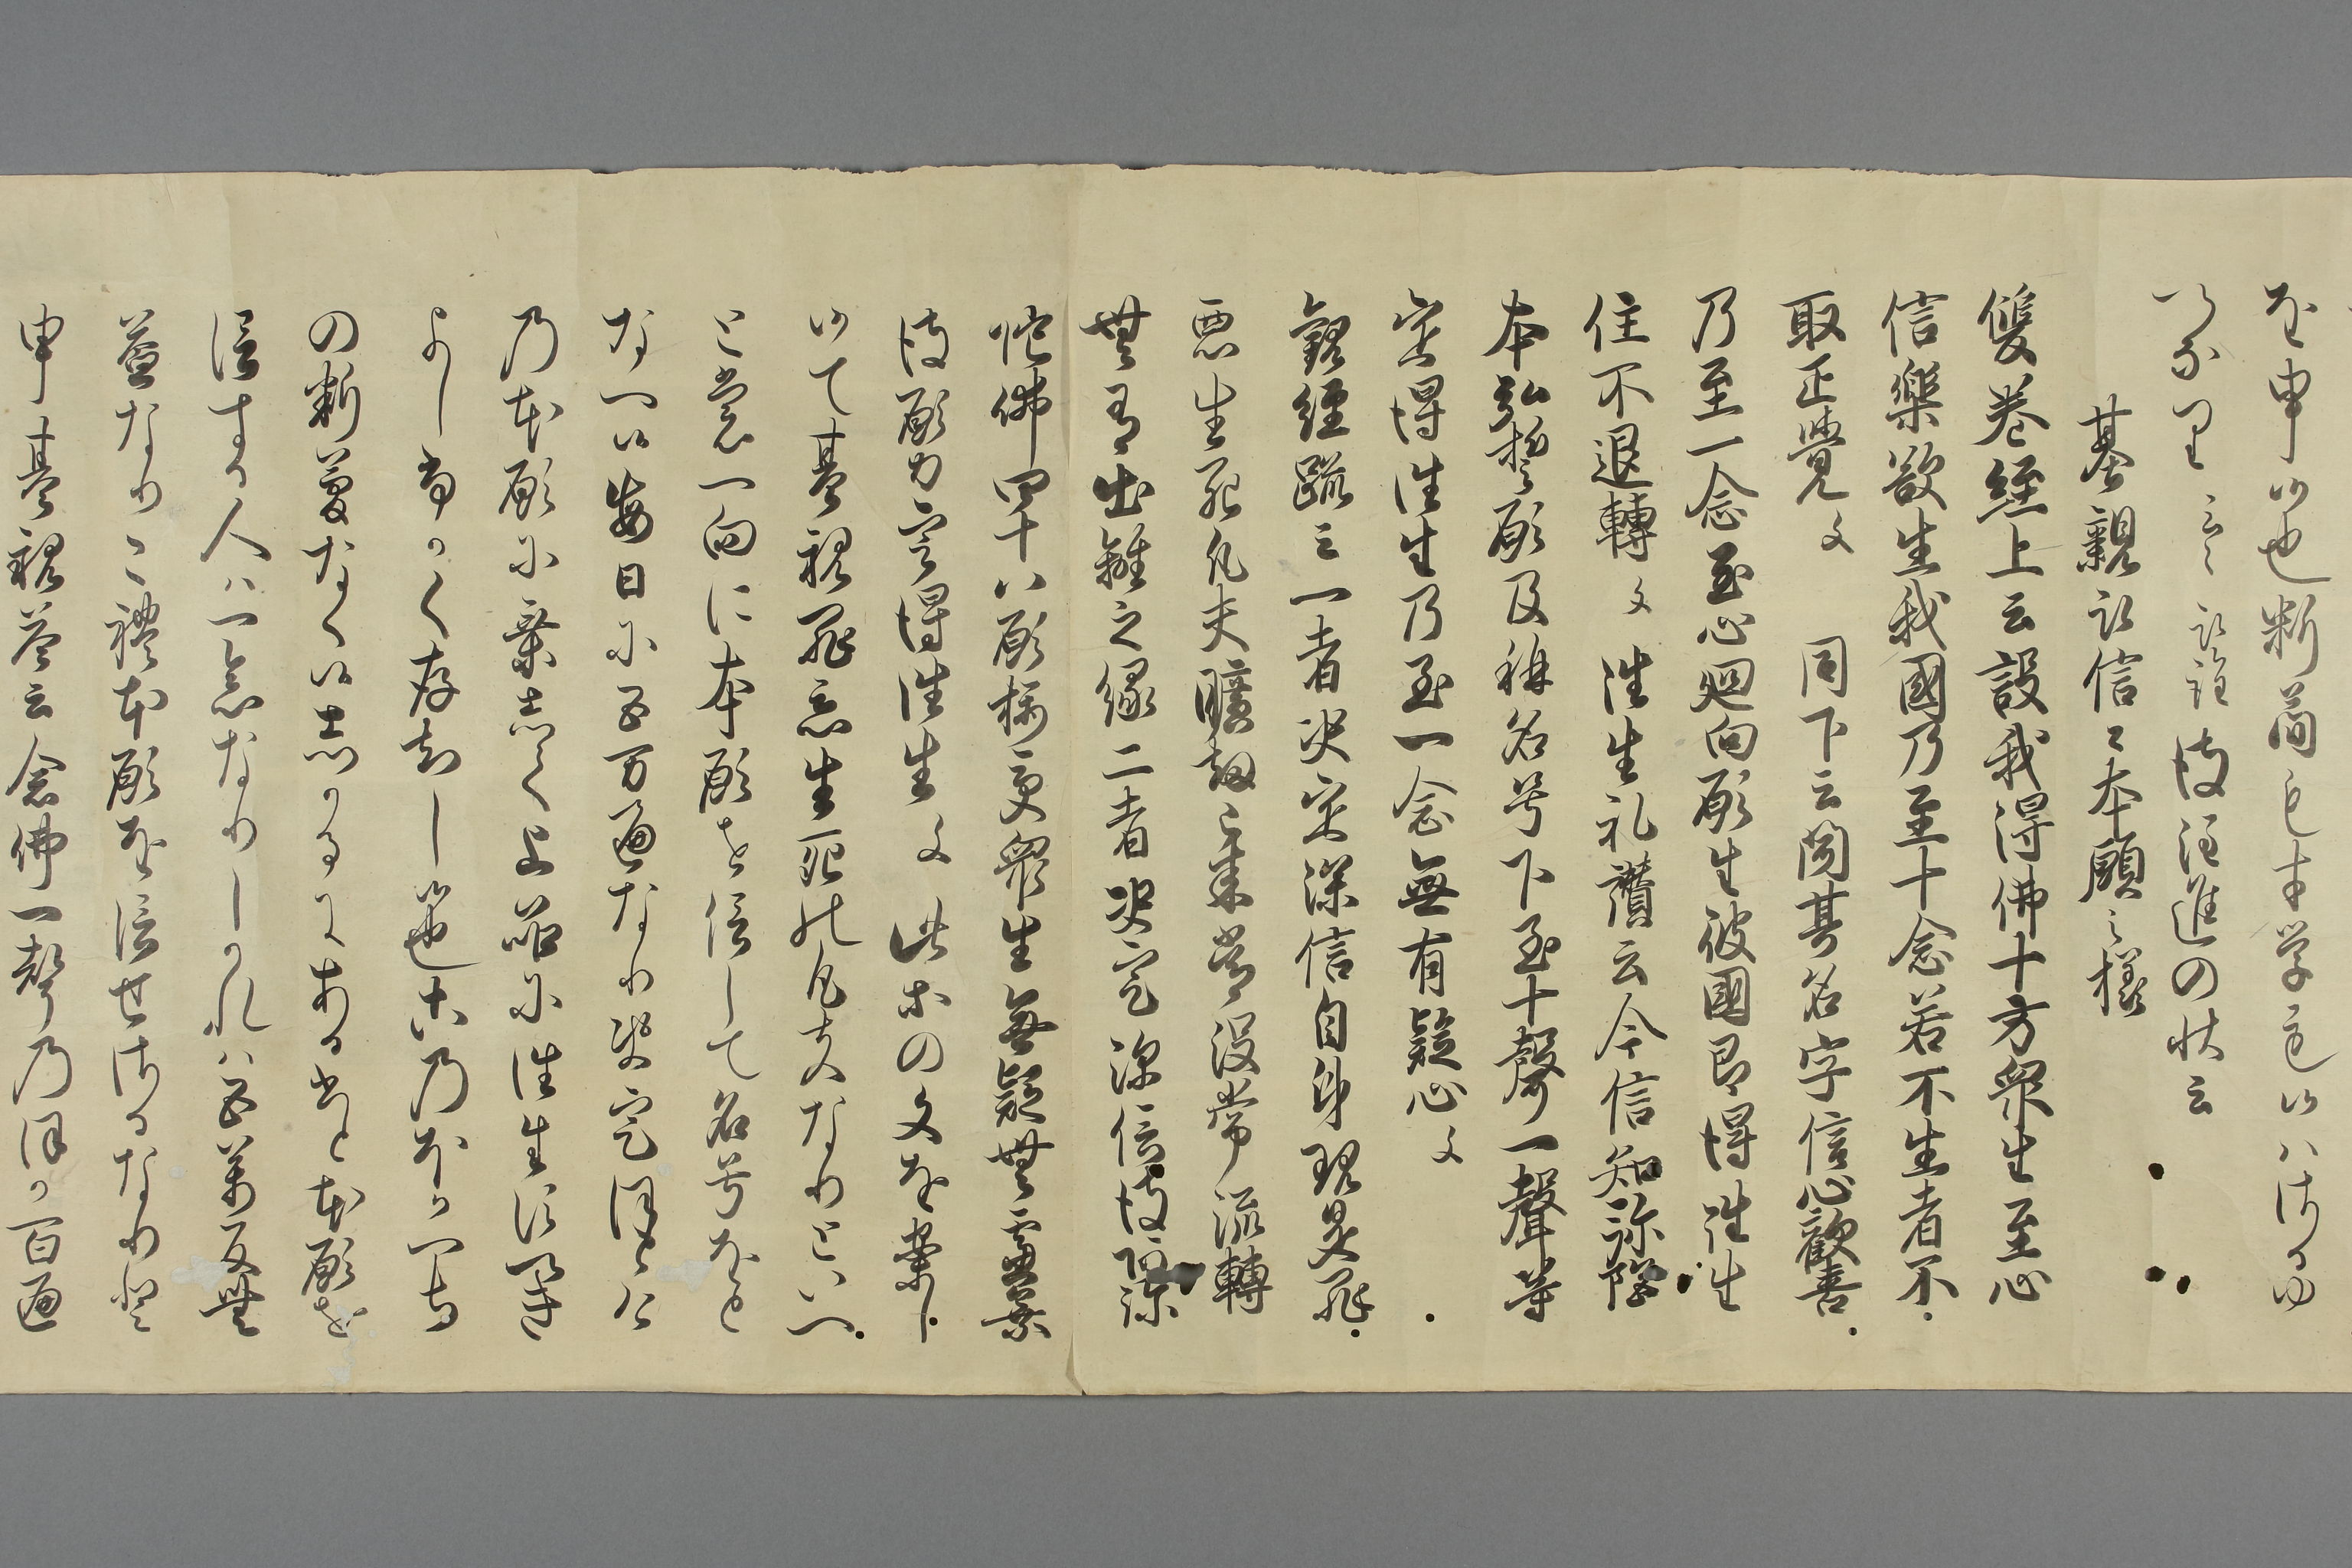 を申候也料簡も才学も候ハさる
彼注進の状云
基親取信々本願之様
雙巻経上云設我得佛十方衆生至心
信樂欲生我國乃至十念若不生者不
取正覺文 同下云聞其名字信心歡喜
乃至一念至心廻向願生彼國即得往生
住不退轉文 往生礼讃云今信知弥陀
本弘誓願及稱名号下至十聲一聲等
定得往生乃至一念無有疑心文
觀経疏云一者决定深信自身現是罪
悪生死凡夫曠劫已来常没常流轉
無有出離之縁二者决定深信彼阿弥
陀佛四十八願摂受衆生無疑無慮乗
彼願力定得往生文 此等の文を案
候て基親罪悪生死の凡夫なりといへ
と意一向に本願を信して名号をと
な一候毎日に五万遍なり决定佛
の本願に乗して上品に往生すへき
よしふかく存知し候也このほか
の料簡なく候しかるにある人本願を
信する人ハ一念なりしかれハ五萬反無
益なり本願を信せさるなりと
申基親答云念佛一聲のほか百遍